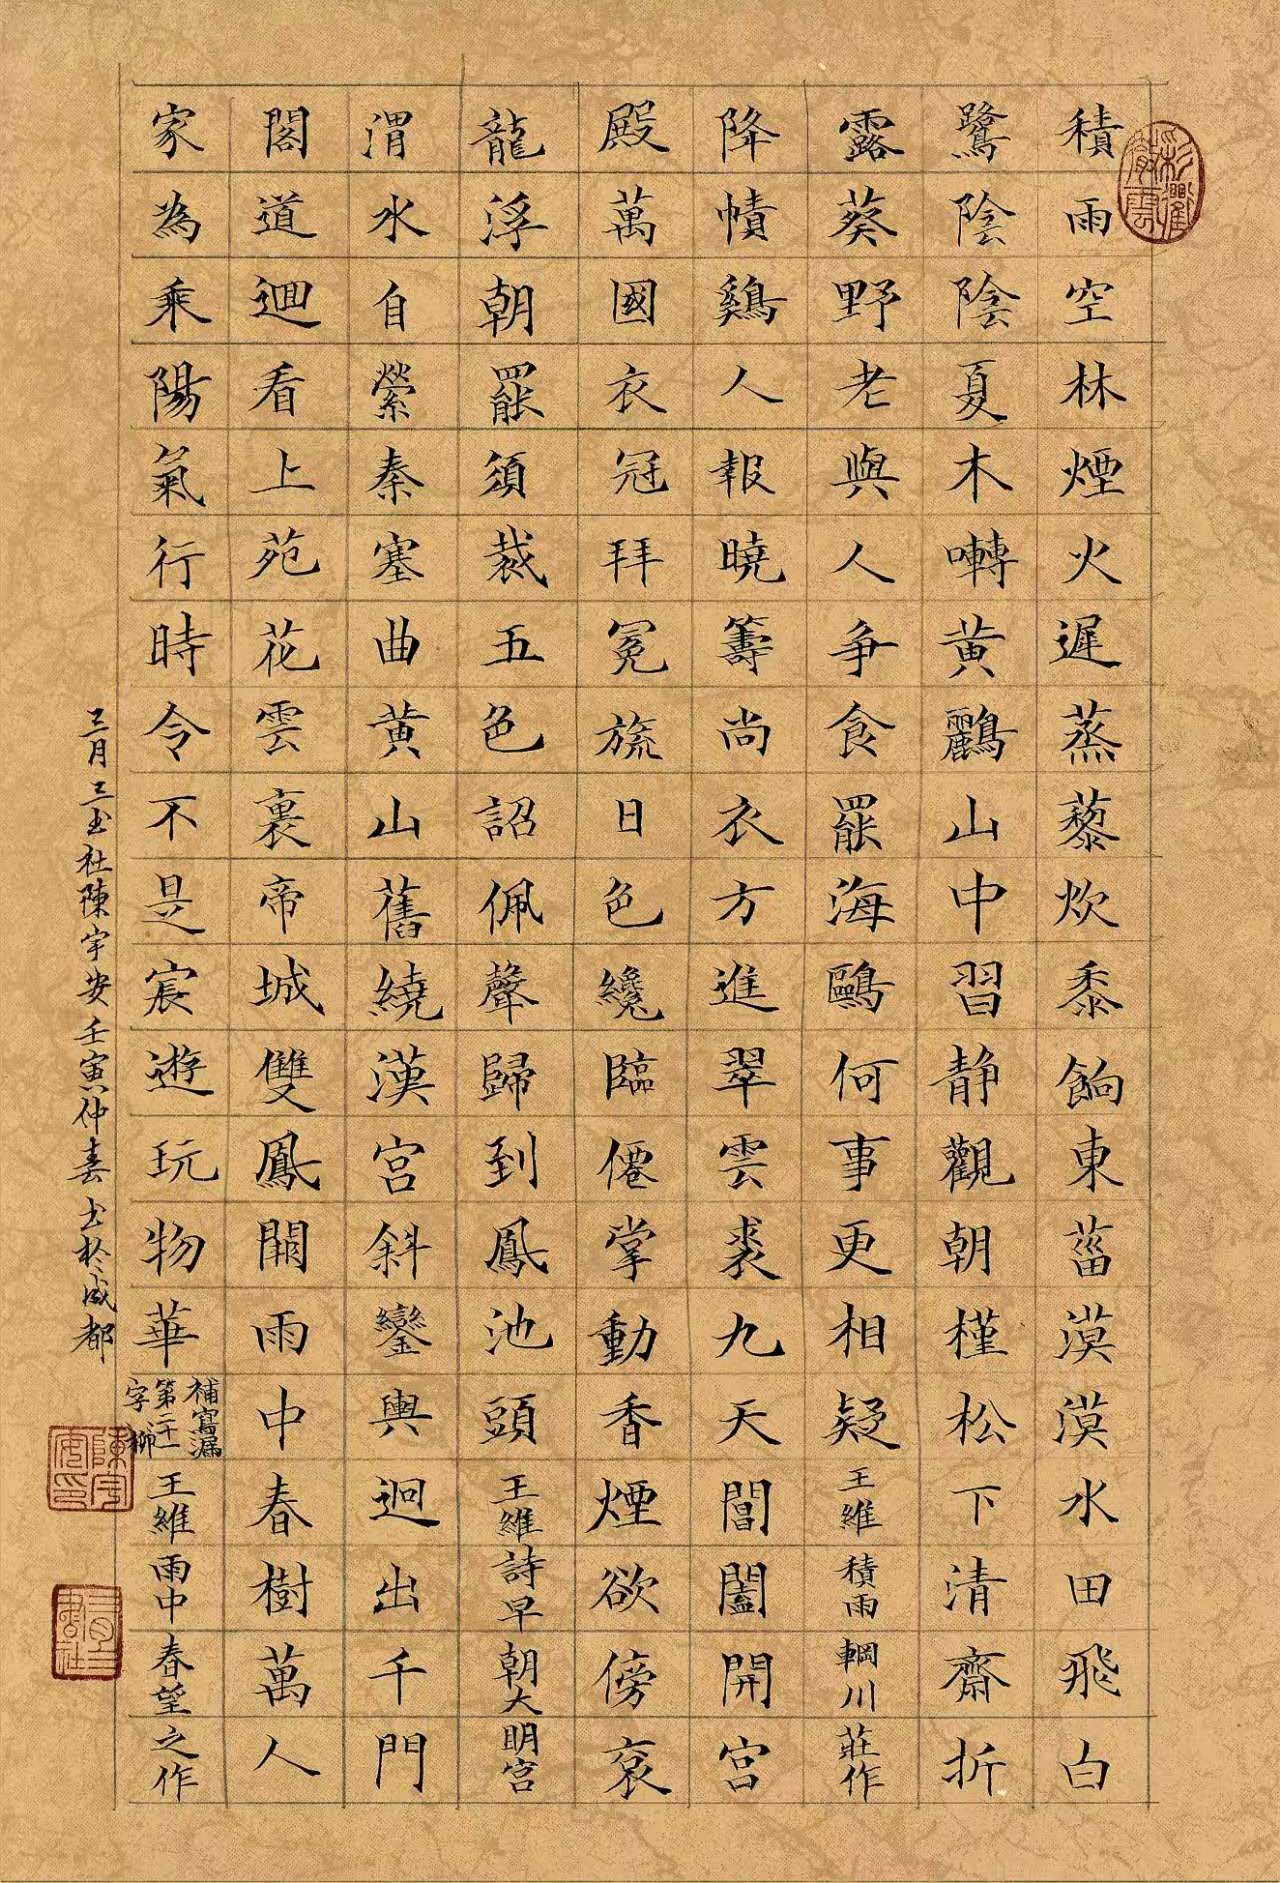 積雨空林煙火遲蒸藜炊黍餉東菑漠漠水田飛白
鷺陰陰夏木囀黄鸝山中習静觀朝槿松下清齋折
露葵野老與人争食罷海鷗何事更相疑王維積雨輞川莊作
降幘鷄人報曉籌尚衣方進翠雲裘九天閶闔開宮
殿萬國衣冠拜冕旒日色纔臨僊掌動香煙欲傍袞
龍浮朝罷須裁五色詔佩聲歸到鳳池頭王維詩早朝大明宮
渭水自縈秦塞曲黄山舊繞漢宮斜鑾輿迥出千門
閣道迴看上苑花雲裏帝城雙鳳闕雨中春樹萬人
家為乘陽氣行時令不是宸遊玩物華
補寫漏
第二十一
字柳
王維雨中春望之作
三月三书社陳宇安壬寅仲春书於成都
陳宇安印
三月三書社